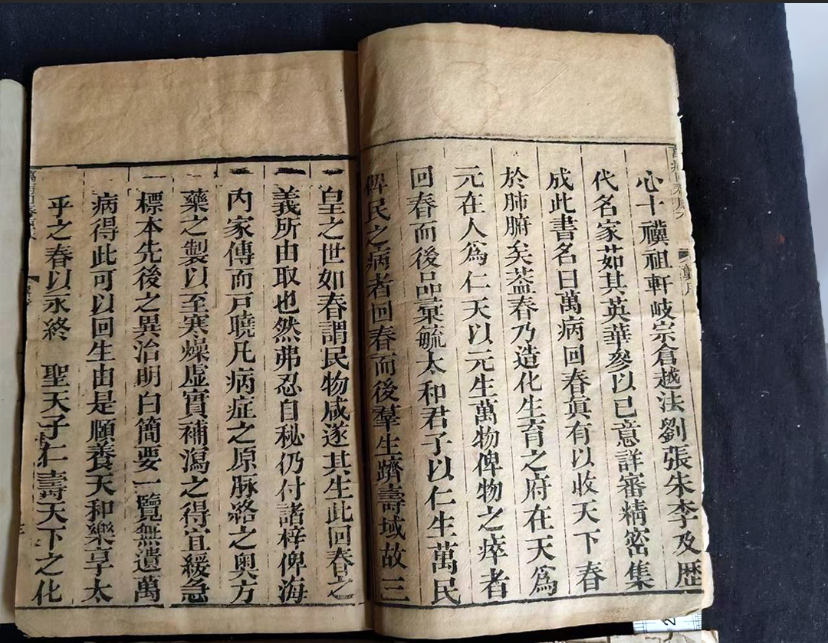 心十禩祖軒岐宗倉越法劉張朱李及歷
代名家茹其英華參以已意詳審精密集
成此書名曰萬病回春眞有以收天下春
於肺腑矣葢春乃造化生育之府在天爲
元在人爲仁天以元生萬物俾物之瘁者
回春而後品彙毓太和君子以仁生萬民
俾民之病者回春而後羣生躋壽域故三
皇之世如春謂民物咸遂其生此回春之
義所由取也然弗忍自秘仍付諸梓俾海
內家傳而戸曉凡病症之原脉絡之奧方
藥之製以至寒燥虛實補瀉之得宜緩急
標本先後之異治明白簡要一覽無遺萬
病得此可以回生由是頤養天和樂享太
平之春以永終 聖天子仁壽天下之化